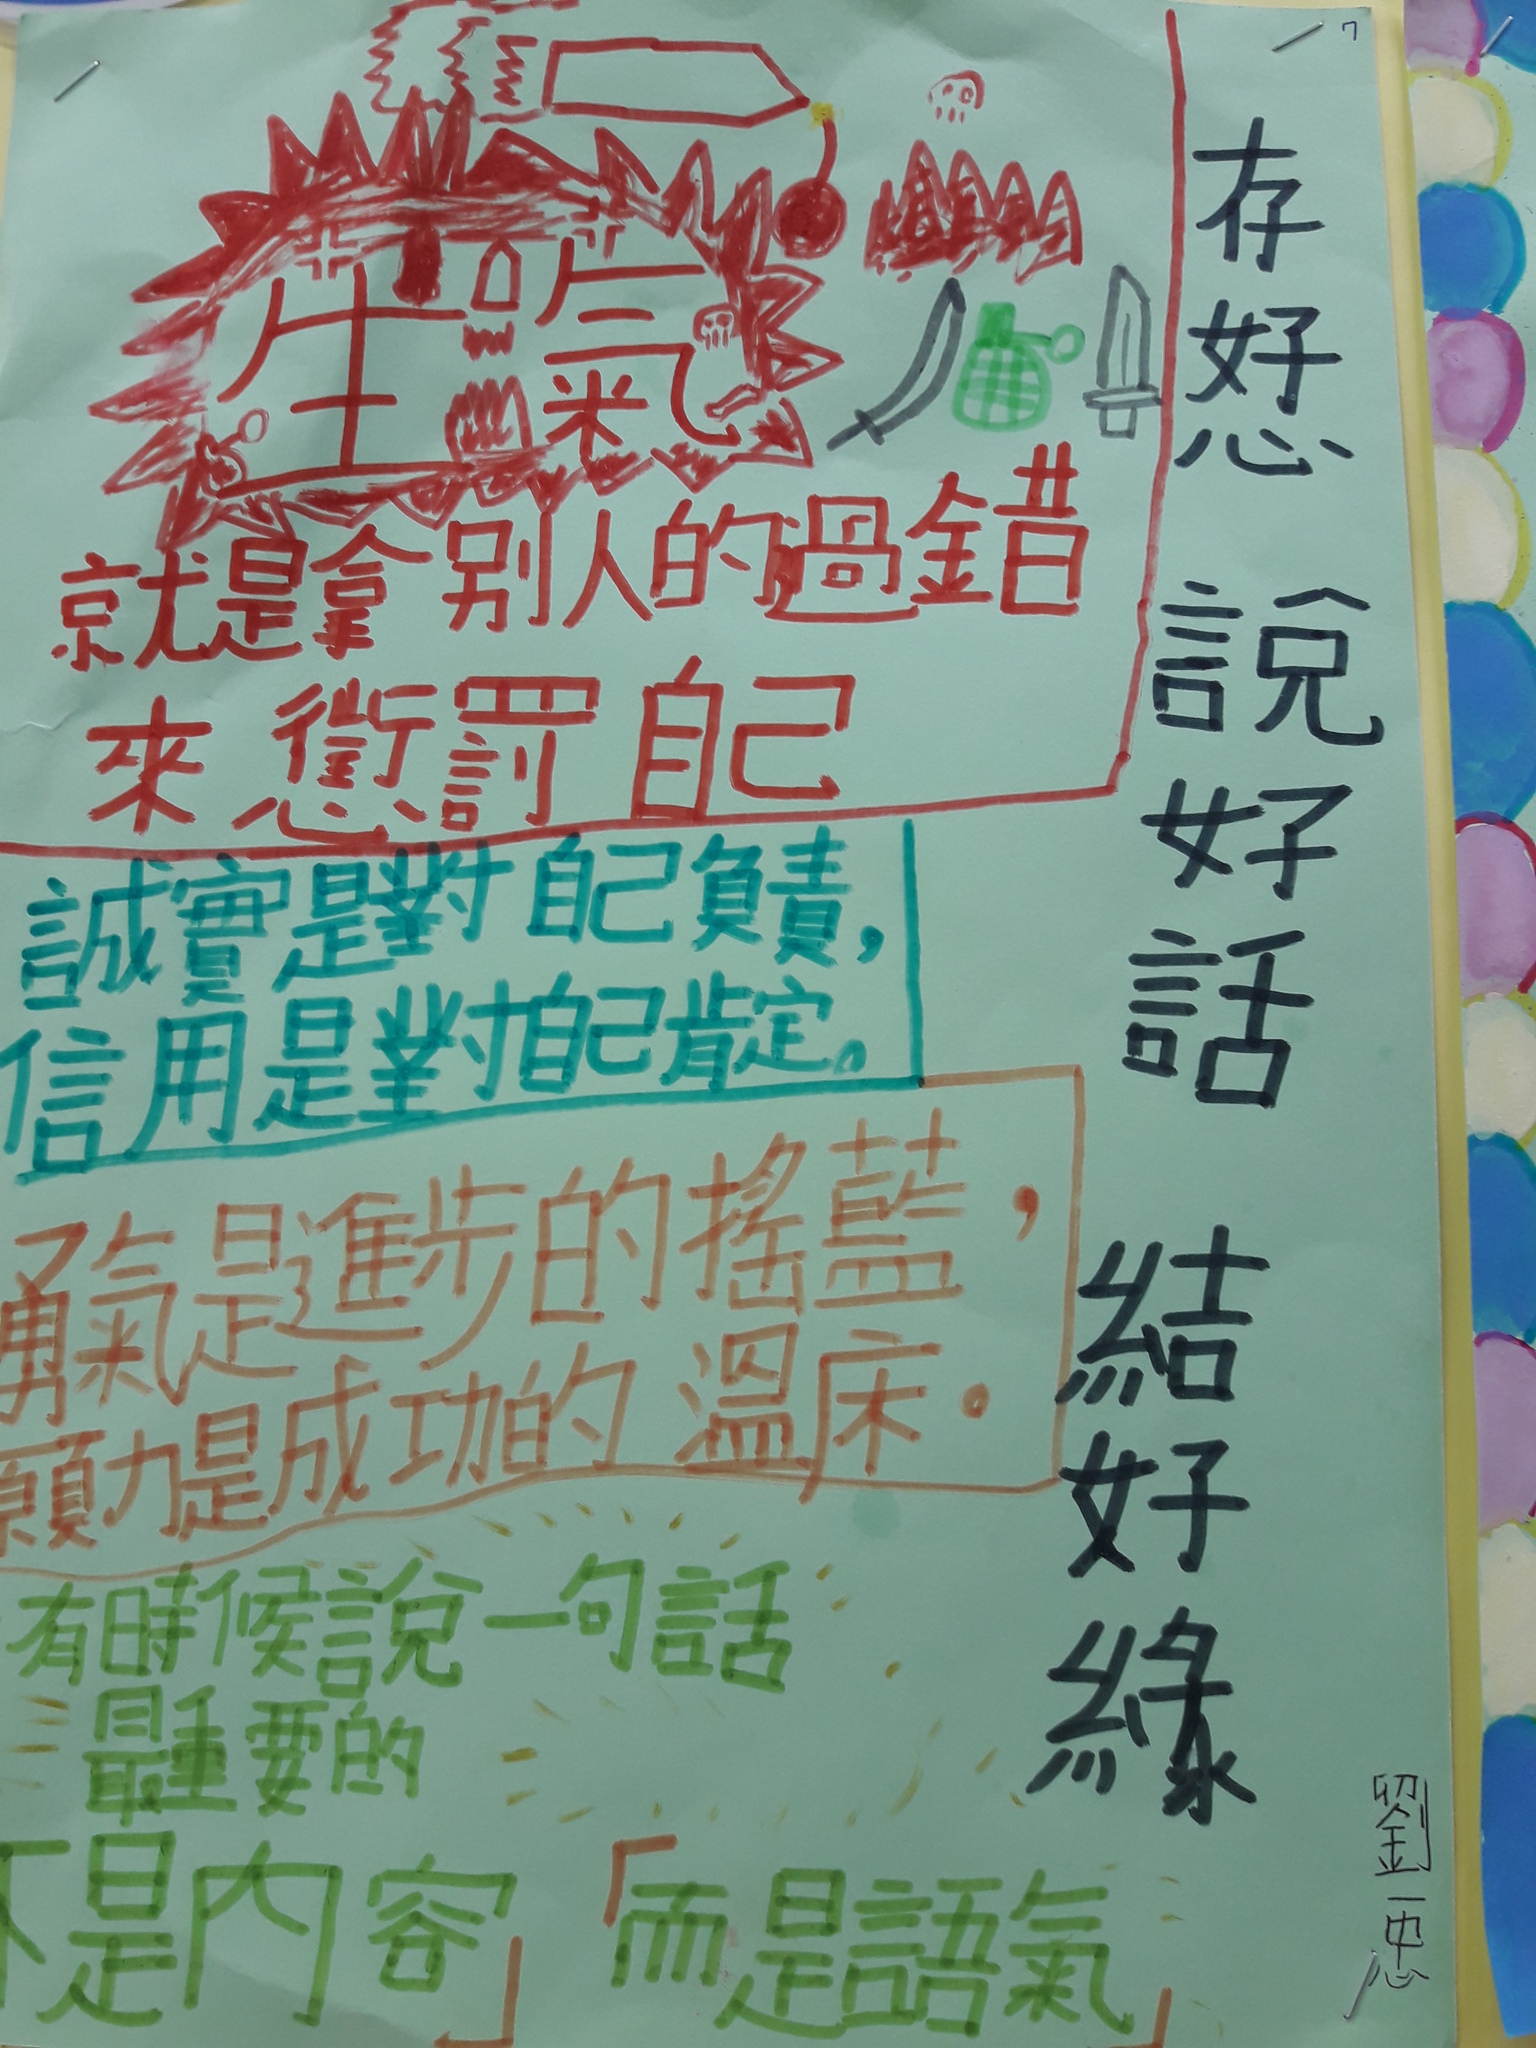 7
存好心 說好話 結好緣
生氣
就是拿別人的過錯
來懲罰自己
誠實是對自己負責，
信用是對自己肯定。
勇氣是進步的搖藍，
願力是成功的溫床。
有時候說一句話
最重要的
不是內容」「而是語氣」
劉一